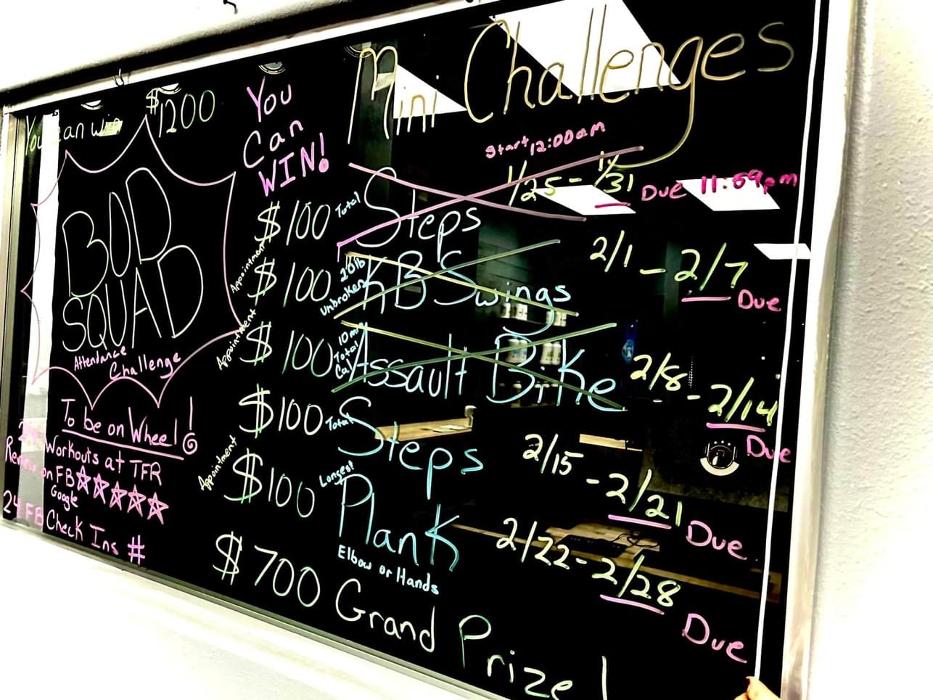 You can win $1200
BOD
SQUAD
Attendance
Challenge
To be on Wheel!
Workouts at TFR
Review on FB ☆☆☆☆☆
Google
24 FB Check Ins #
You
Can
WIN!
Mini Challenges
Start 12:00am
$100 Total Steps 1/25 - 1/31 Due 11:59pm
Appointment $100 20lb Unbroken KB Swings 2/1 - 2/7 Due
Appointment $100 10 min Total Cal Assault Bike 2/8 - 2/14 Due
$100 Total Steps 2/15 - 2/21 Due
Appointment $100 Longest Plank 2/22 - 2/28 Due
Elbow or Hands
$700 Grand Prize!